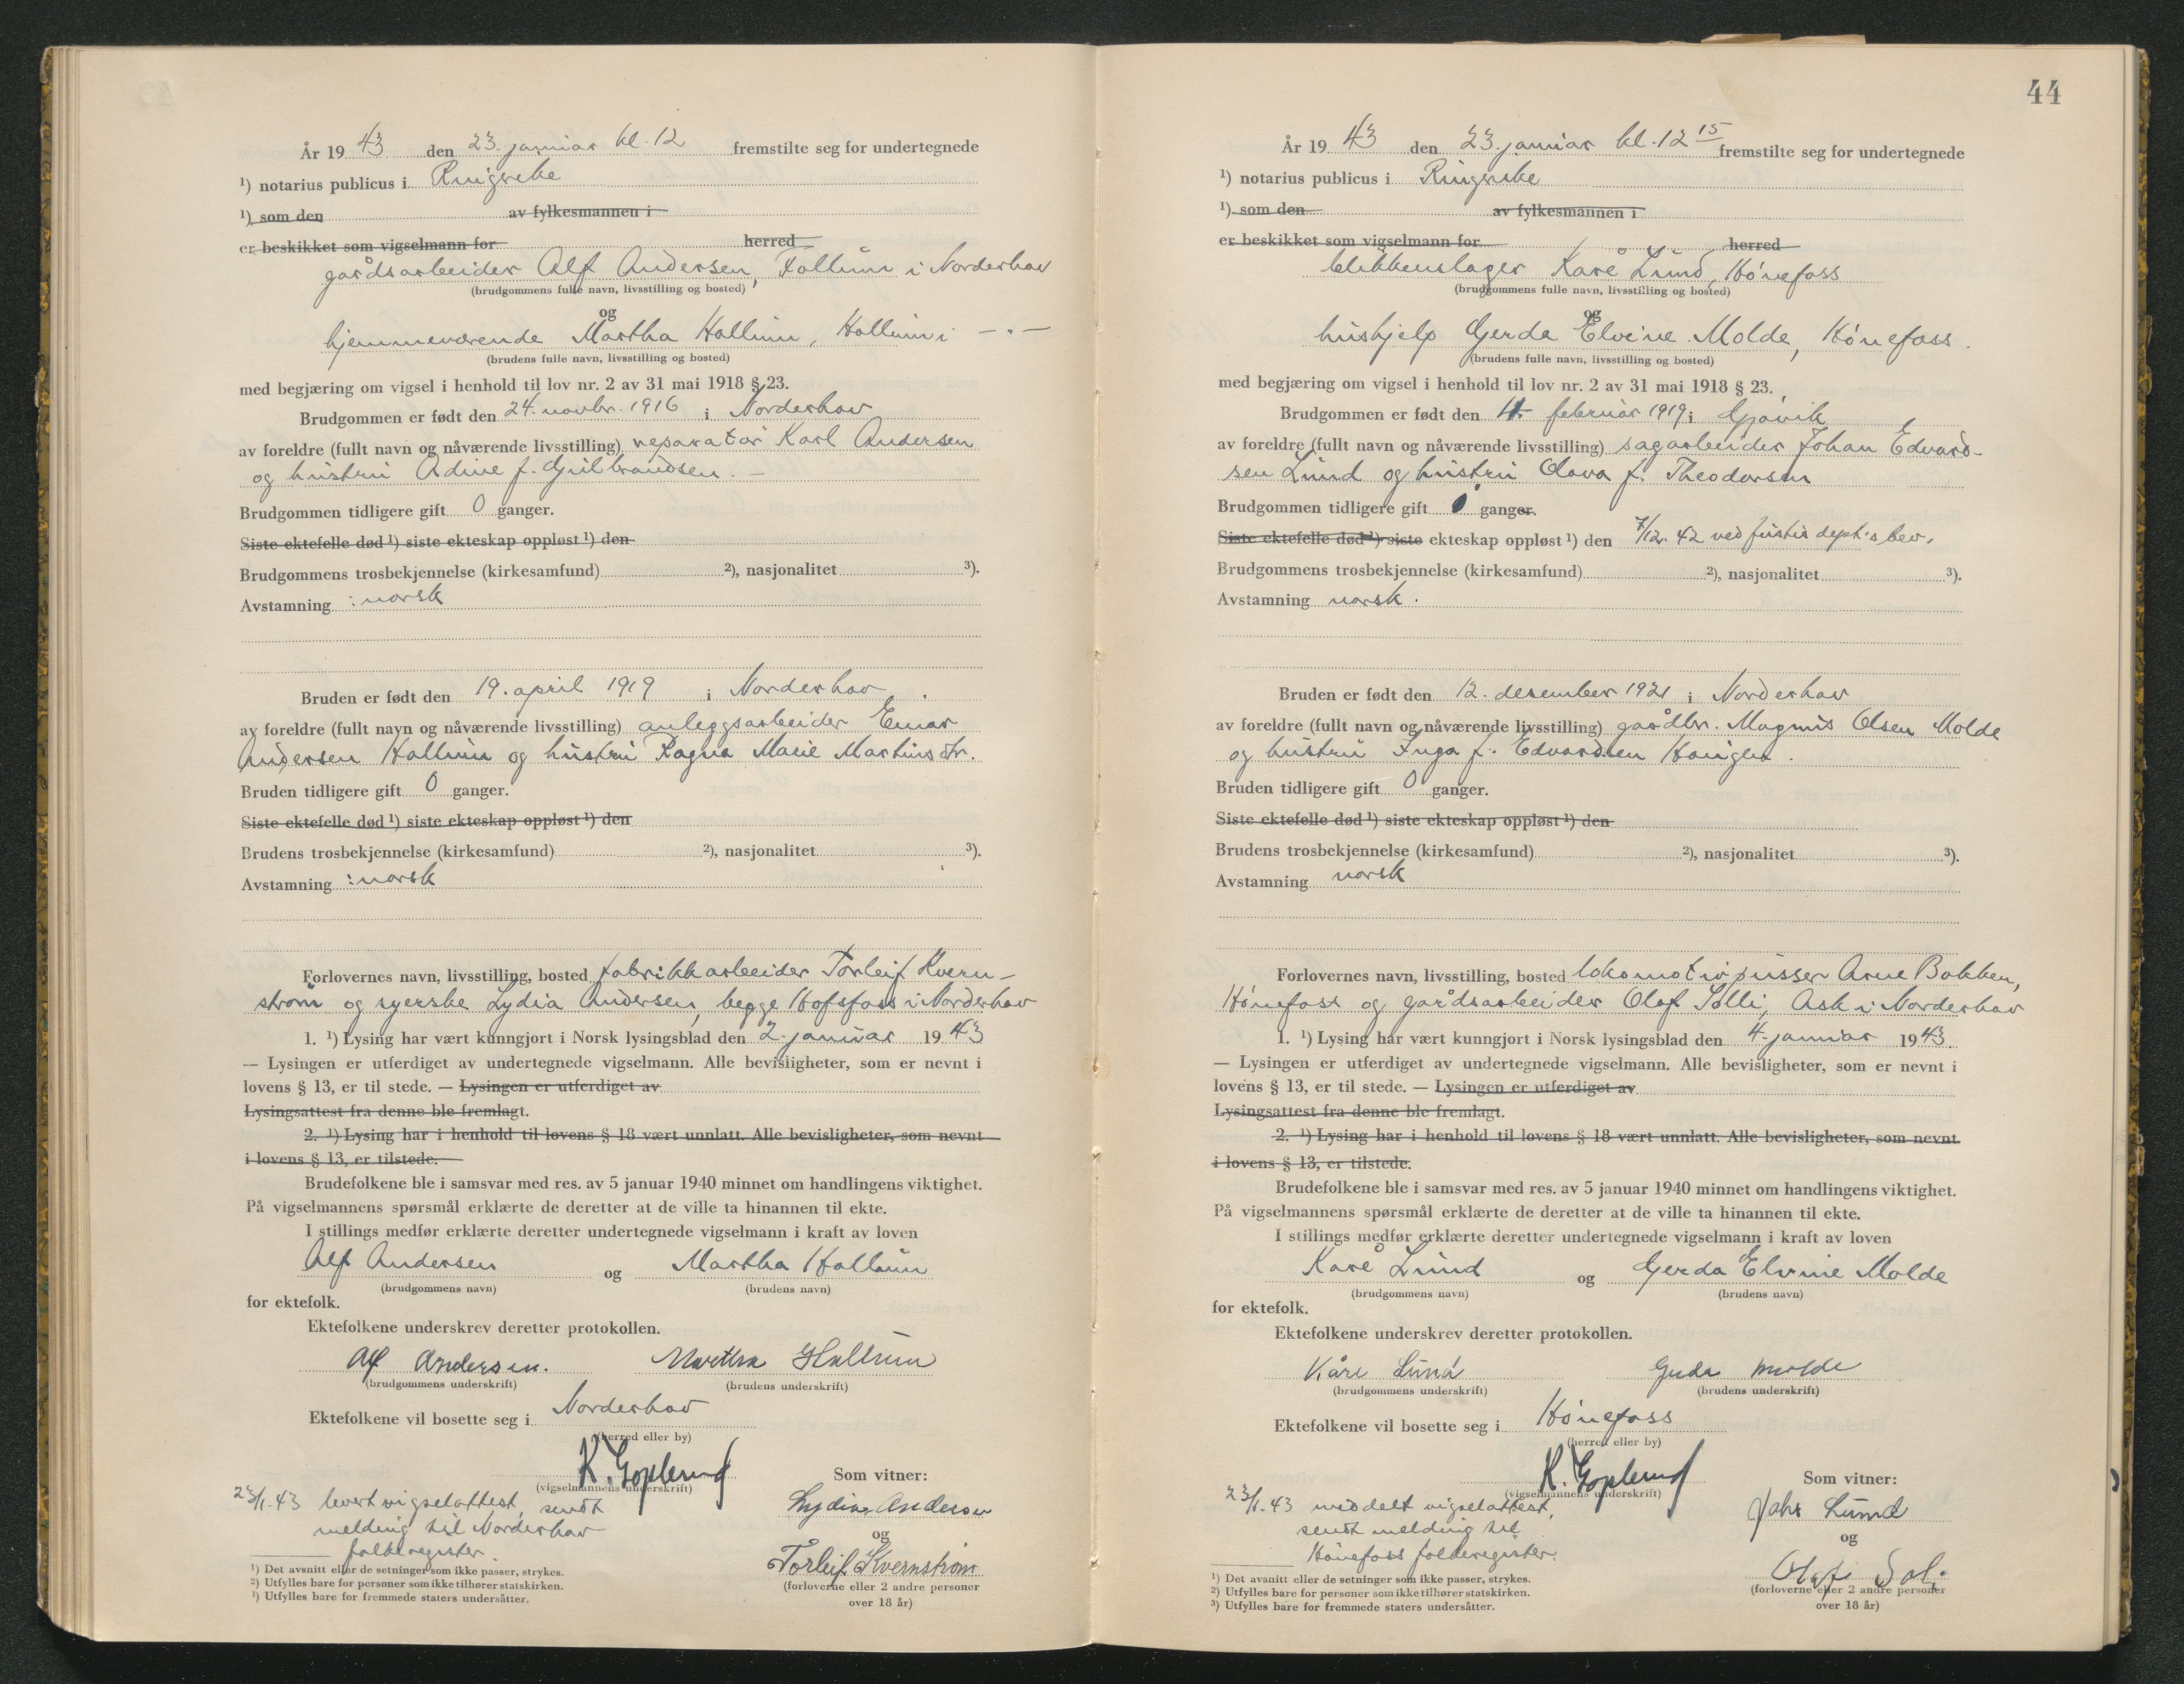 År 19 43 den 23. januar kl. 12 fremstilte seg for undertegnede
¹) notarius publicus i Ringerike
¹) som den av fylkesmannen i
er beskikket som vigselmann for herred
gårdsarbeider Alf Andersen, Hallum i Norderhov
(brudgommens fulle navn, livsstilling og bosted)
og
hjemmeværende Martha Hallum, Hallum i —„—
(brudens fulle navn, livsstilling og bosted)
med begjæring om vigsel i henhold til lov nr. 2 av 31 mai 1918 § 23.
Brudgommen er født den 24. novbr. 1916 i Norderhov
av foreldre (fullt navn og nåværende livsstilling) reparatør Karl Andersen
og hustru Adine f. Gulbrandsen. —
Brudgommen tidligere gift 0 ganger.
Siste ektefelle død ¹) siste ekteskap oppløst ¹) den
Brudgommens trosbekjennelse (kirkesamfund) ²), nasjonalitet ³).
Avstamning : norsk
Bruden er født den 19. april 1919 i Norderhov .
av foreldre (fullt navn og nåværende livsstilling) anleggsarbeider Einar
Andersen Hallum og hustru Ragna Marie Martinsdtr.
Bruden tidligere gift 0 ganger.
Siste ektefelle død ¹) siste ekteskap oppløst ¹) den
Brudens trosbekjennelse (kirkesamfund) ²), nasjonalitet ³).
Avstamning : norsk
Forlovernes navn, livsstilling, bosted fabrikkarbeider Torleif Kvern-
strøm og syerske Lydia Andersen, begge Hofsfoss i Norderhov
1. ¹) Lysing har vært kunngjort i Norsk lysingsblad den 2. januar 19 43
— Lysingen er utferdiget av undertegnede vigselmann. Alle bevisligheter, som er nevnt i
lovens § 13, er til stede. — Lysingen er utferdiget av
Lysingsattest fra denne ble fremlagt.
2. ¹) Lysing har i henhold til lovens § 18 vært unnlatt. Alle bevisligheter, som nevnt
i lovens § 13, er tilstede.
Brudefolkene ble i samsvar med res. av 5 januar 1940 minnet om handlingens viktighet.
På vigselmannens spørsmål erklærte de deretter at de ville ta hinannen til ekte.
I stillings medfør erklærte deretter undertegnede vigselmann i kraft av loven
Alf Andersen og Martha Hallum
(brudgommens navn) (brudens navn)
for ektefolk.
Ektefolkene underskrev deretter protokollen.
Alf Andersen. Martha Hallum
(brudgommens underskrift) (brudens underskrift)
Ektefolkene vil bosette seg i Norderhov
(herred eller by)
K. Goplerud
(vigselmannens underskrift)
Som vitner:
23/1.43 levert vigselattest, sendt
melding til Norderhov
folkeregister.
Lydia Andersen
og
Torleif Kvernstrøm
(forloverne eller 2 andre personer
over 18 år)
¹) Det avsnitt eller de setninger som ikke passer, strykes.
²) Utfylles bare for personer som ikke tilhører statskirken.
³) Utfylles bare for fremmede staters undersåtter.
44
År 19 43 den 23. januar kl. 12 15 fremstilte seg for undertegnede
¹) notarius publicus i Ringerike
¹) som den av fylkesmannen i
er beskikket som vigselmann for herred
blikkenslager Kåre Lund, Hönefoss
(brudgommens fulle navn, livsstilling og bosted)
og
hushjelp Gerda Elvine Molde, Hönefoss.
(brudens fulle navn, livsstilling og bosted)
med begjæring om vigsel i henhold til lov nr. 2 av 31 mai 1918 § 23.
Brudgommen er født den februar 1919 i Gjøvik
av foreldre (fullt navn og nåværende livsstilling) sagarbeider Johan Edvard-
sen Lund og hustru Olava f. Theodorsen
Brudgommen tidligere gift ganger.
Siste ektefelle død ¹) siste ekteskap oppløst ¹) den 7/12. 42 ved justis dept.s bev.
Brudgommens trosbekjennelse (kirkesamfund) ²), nasjonalitet ³).
Avstamning norsk.
Bruden er født den 12. desember 1921 i Norderhov
av foreldre (fullt navn og nåværende livsstilling) gårdbr. Magnus Olsen Molde
og hustru Inga f. Edvardsen Haugen.
Bruden tidligere gift 0 ganger.
Siste ektefelle død ¹) siste ekteskap oppløst ¹) den
Brudens trosbekjennelse (kirkesamfund) ²), nasjonalitet ³).
Avstamning norsk
Forlovernes navn, livsstilling, bosted lokomotivpusser Arne Bakken,
Hönefoss og gårdsarbeider Olaf Solli, Ask i Norderhov
1. ¹) Lysing har vært kunngjort i Norsk lysingsblad den 4. januar 19 43.
— Lysingen er utferdiget av undertegnede vigselmann. Alle bevisligheter, som er nevnt i
lovens § 13, er til stede. — Lysingen er utferdiget av
Lysingsattest fra denne ble fremlagt.
2. ¹) Lysing har i henhold til lovens § 18 vært unnlatt. Alle bevisligheter, som nevnt
i lovens § 13, er tilstede.
Brudefolkene ble i samsvar med res. av 5 januar 1940 minnet om handlingens viktighet.
På vigselmannens spørsmål erklærte de deretter at de ville ta hinannen til ekte.
I stillings medfør erklærte deretter undertegnede vigselmann i kraft av loven
Kåre Lund og Gerda Elvine Molde
(brudgommens navn) (brudens navn)
for ektefolk.
Ektefolkene underskrev deretter protokollen.
Kåre Lund Gerda Molde
(brudgommens underskrift) (brudens underskrift)
Ektefolkene vil bosette seg i Hönefoss
(herred eller by)
K. Goplerud
(vigselmannens underskrift)
Som vitner:
23/1.43 meddelt vigselattest,
sendt melding til
Hönefoss folkeregister.
Lund
og
(forloverne eller 2 andre personer
over 18 år)
¹) Det avsnitt eller de setninger som ikke passer, strykes.
²) Utfylles bare for personer som ikke tilhører statskirken.
³) Utfylles bare for fremmede staters undersåtter.